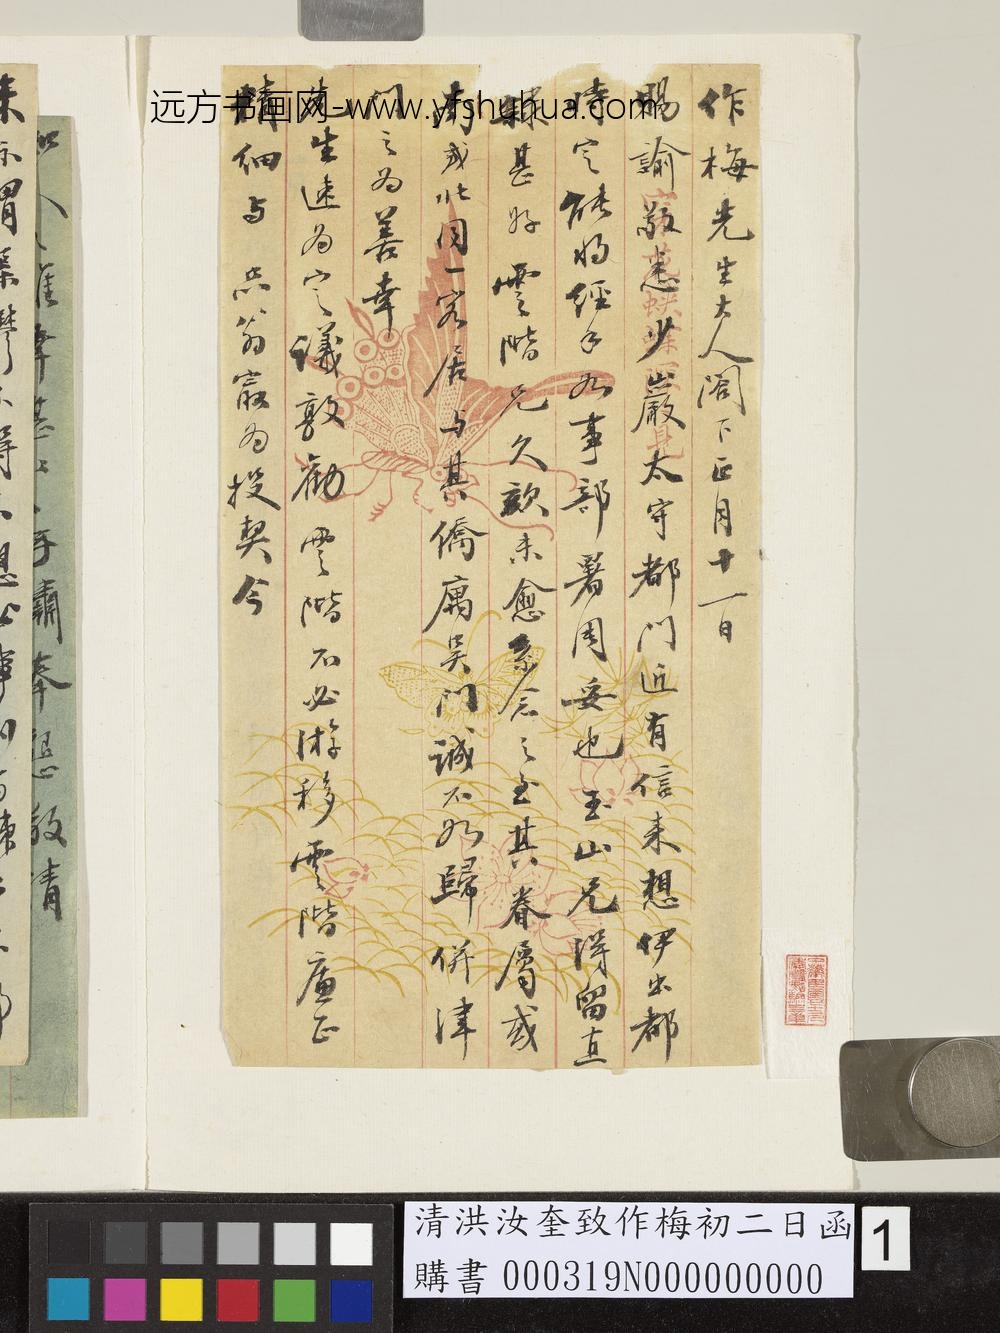 作梅先生大人閣下正月十一日
賜諭敬悉少巖太守都門近有信来想伊出都
時定能將經手各事部署周妥也玉山兄得留直
隸甚好雲階兄久款未愈系念之至其眷屬或
南或北同一客居与其僑寓吴門誠不如歸併津
門之為善幸
先生速為定議敦勸雲階不必游移雲階廉正
精細与 翁最為投契今
远方书画网-www.yfshuhua.com
清洪汝奎致作梅初二日函
購書 000319N000000000
1